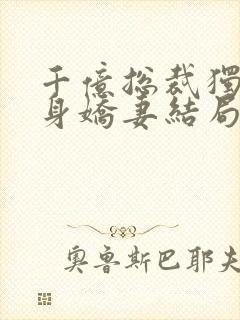 千億總裁獨
身嬌妻結局
奧魯斯巴耶夫